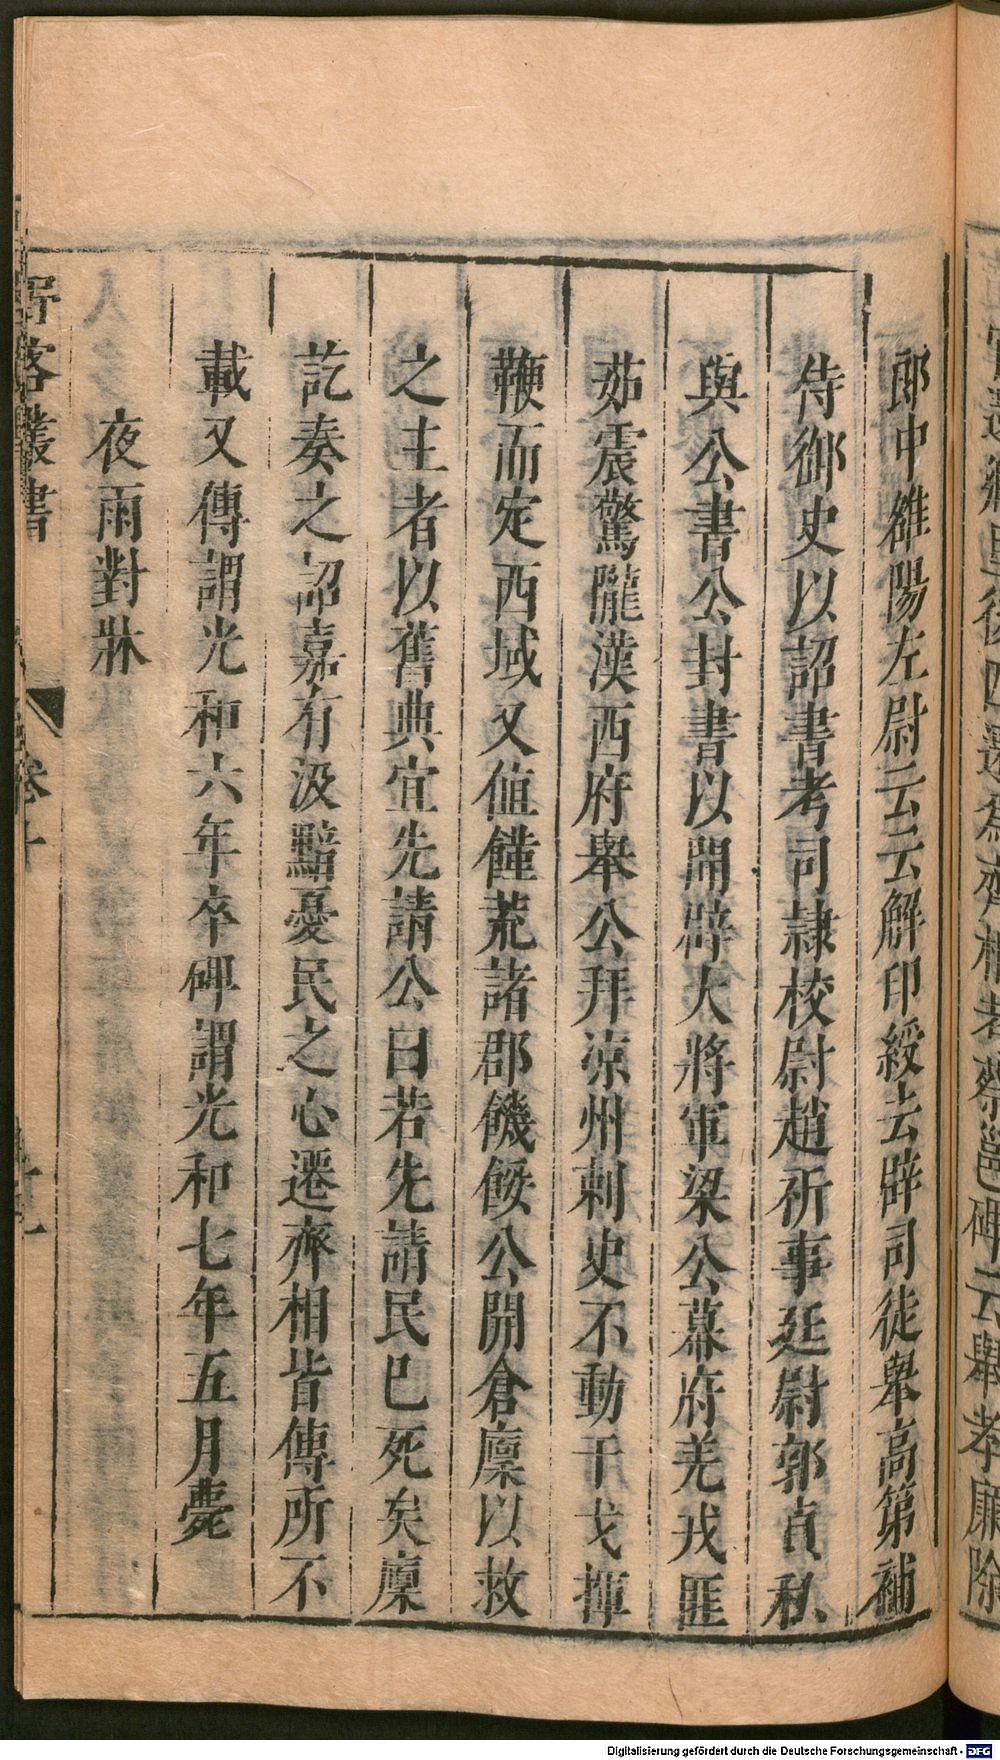 郎中雒陽左尉云云解印綬去辟司徒舉高第補
侍御史以詔書考司隷校尉趙祈事廷尉郭貞私
與公書公封書以聞辟大將軍梁公幕府羌戎匪
茹震驚隴漢西府舉公拜涼州刺史不動干戈揮
鞭而定西域又値饉荒諸郡饑餒公開倉廩以救
之主者以舊典宜先請公曰若先請民巳死矣廩
訖奏之詔嘉有汲黯憂民之心遷齊相皆傳所不
載又傳謂光和六年卒碑謂光和七年五月薨
夜雨對牀
客叢書
卷十
遷為齊相若蔡邕碑云舉孝廉除
Digitalisierung gefördert durch die Deutsche Forschungsgemeinschaft - DFG